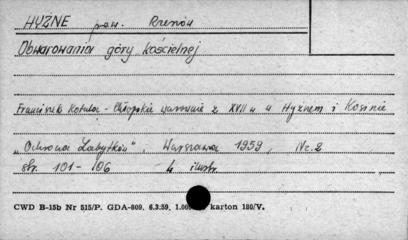 HYŻNE pow. Rzeszów
Obwarowania góry kościelnej
Franciszek Kotula - Chłopskie warownie z XVII w w Hyżnem i Kosinie
„Ochrona Zabytków", Warszawa 1959, Nr. 2
str. 101-106 4 ilustr.
CWD B-15b Nr 515/P. GDA-809. 6.3.59. karton 180/V.